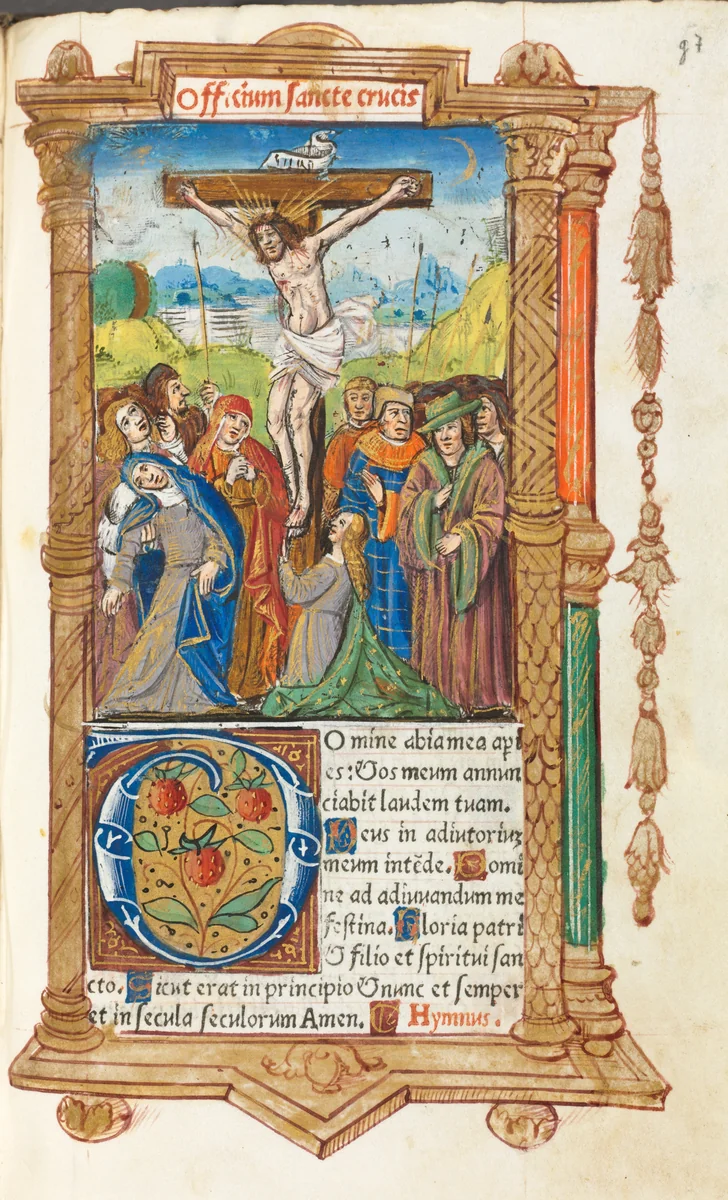 g 7
Officium sancte crucis
Domine labia mea aperi
es: Et os meum annun
ciabit laudem tuam.
Deus in adiutoriuz
meum intēde. Domi
ne ad adiuuandum me
festina. Gloria patri
Et filio et spiritui san
cto. Sicut erat in principio Et nunc et semper
et in secula seculorum Amen. Hymnus.